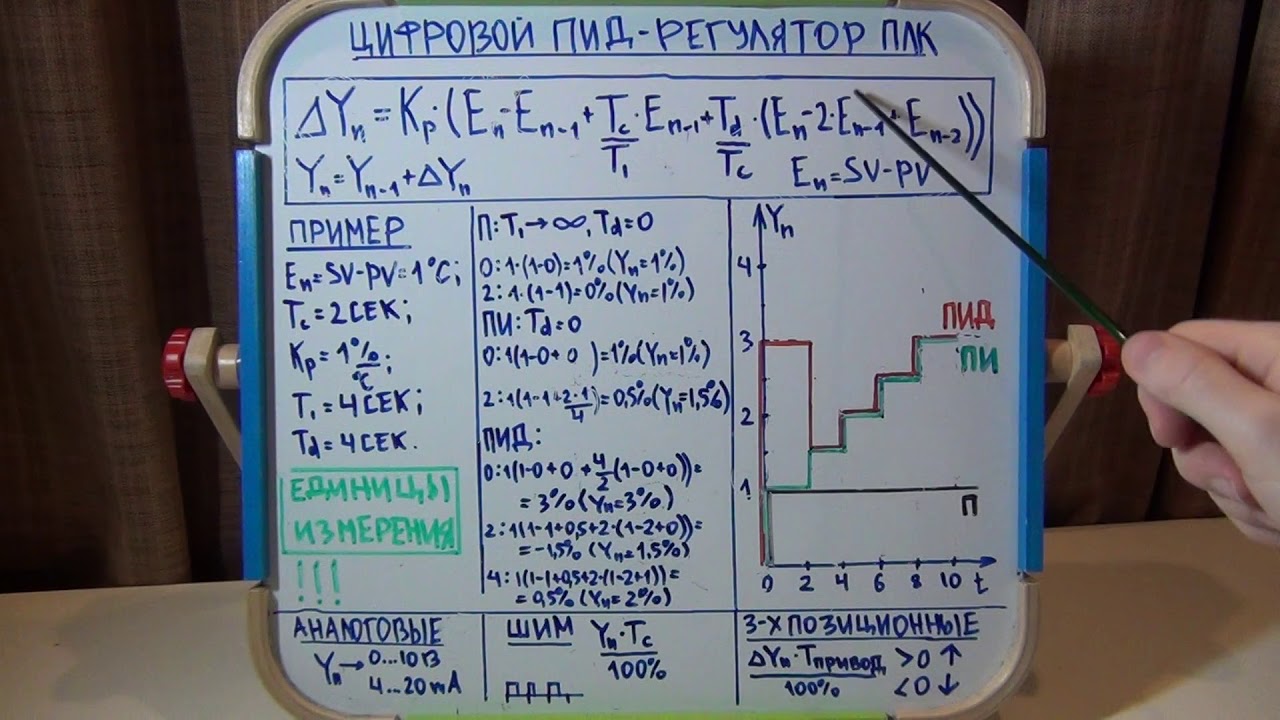 ЦИФРОВОЙ ПИД-РЕГУЛЯТОР ПЛК
ΔYn = Kp·(En-En-1+Tc/T1·En-1+Td/Tc·(En-2·En-1+En-2))
Yn=Yn-1+ΔYn
En=SV-PV
ПРИМЕР
En=SV-PV=1°C;
Tc=2СЕК;
Kp=1%/°C;
T1=4СЕК;
Td=4СЕК.
ЕДИНИЦЫ
ИЗМЕРЕНИЯ
!!!
П: T1→∞, Td=0
0:1·(1-0)=1%(Yn=1%)
2:1·(1-1)=0%(Yn=1%)
ПИ: Td=0
0:1(1-0+0 )=1%(Yn=1%)
2:1(1-1+2·1/4)=0,5%(Yn=1,5%)
ПИД:
0:1(1-0+0+4/2(1-0+0))=
=3%(Yn=3%)
2:1(1-1+0,5+2·(1-2+0))=
=-1,5%(Yn=1,5%)
4:1(1-1+0,5+2·(1-2+1))=
=0,5%(Yn=2%)
Yn
4
3
2
1
ПИД
ПИ
П
0 2 4 6 8 10 t
АНАЛОГОВЫЕ
Yn→0...10В
4...20mA
ШИМ
Yn·Tc/100%
3-Х ПОЗИЦИОННЫЕ
ΔYn·Tпривод/100% >0↑
<0↓